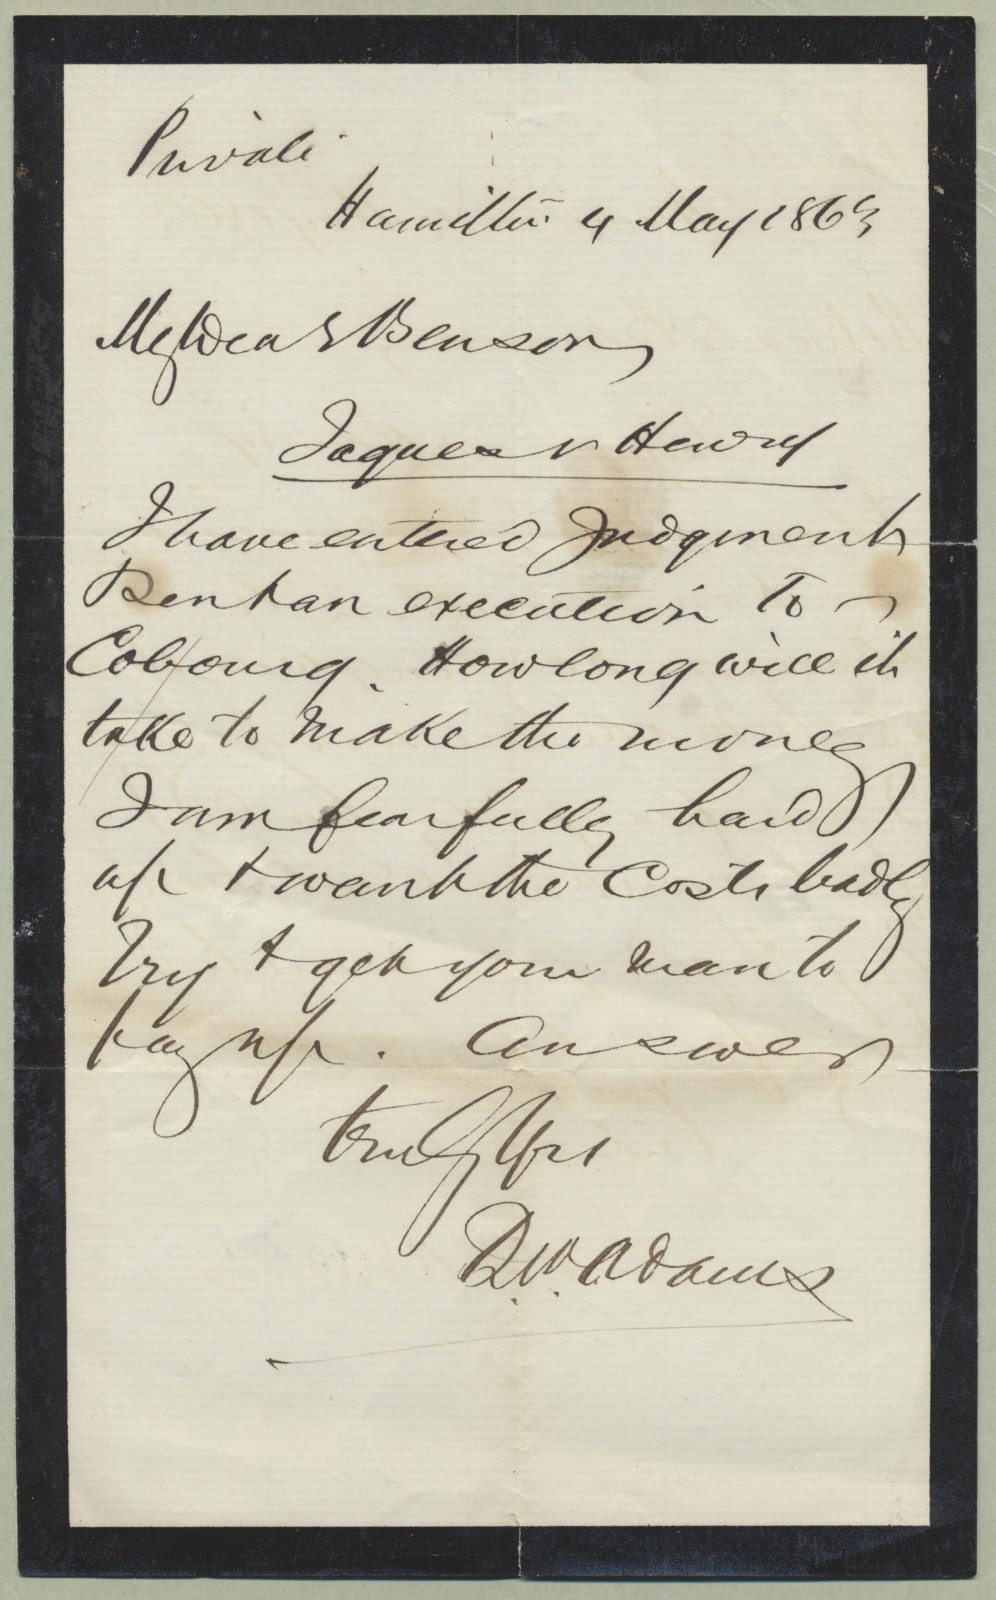 Private
Hamilton 4 May 1863
My Dear Benson
Jaques v Henry
I have entered Judgment
& sent an execution to
Cobourg. How long will it
take to make the money
I am fearfully hard
up & want the Costs badly
Try & get your man to
pay up. Answer
truly Yrs
R. W. Adams